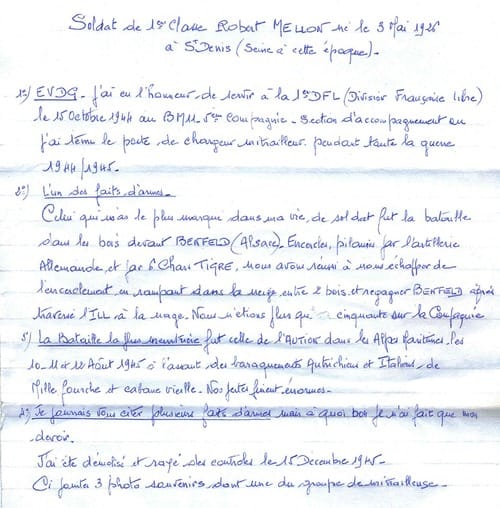 Soldat de 1ère Classe Robert MELLON né le 3 Mai 1926
à St Denis (Seine à cette époque)_
1°) EVDG_ J'ai eu l'honneur de servir à la 1ère DFL (Division Française libre)
le 15 Octobre 1944 au BM11. 5ème Compagnie_ Section d'accompagnement ou
j'ai tenu le poste de chargeur mitrailleur pendant toute la guerre
1944/1945_
2°) L'un des faits d'armes_
Celui qui m'as le plus marqué dans ma vie de soldat fut la bataille
dans les bois devant BENFELD (Alsace)_ Encerclés, pilonnés par l'artillerie
Allemande et par 6 Chars TIGRE, nous avons réussi à nous échapper de
l'encerclement en rampant dans la neige entre 2 bois et regagner BENFELD après
traversé l'ILL à la nage. Nous n'étions plus qu'à cinquante sur la Compagnie
3°) La Bataille la plus meurtrière fut celle de l'AUTION dans les Alpes Maritimes les
10.11 et 12 Août 1945 à l'assaut des baraquements Autrichiens et Italiens, de
Mille fourche et cabane vieille_ Nos pertes furent énormes_
4°) Je pourrais vous citer plusieurs faits d'armes mais à quoi bon je n'ai fait que mon
devoir_
J'ai été démobilisé et rayé des contrôles le 15 Décembre 1945_
Ci joints 3 photo souvenirs dont une du groupe de mitrailleuse_